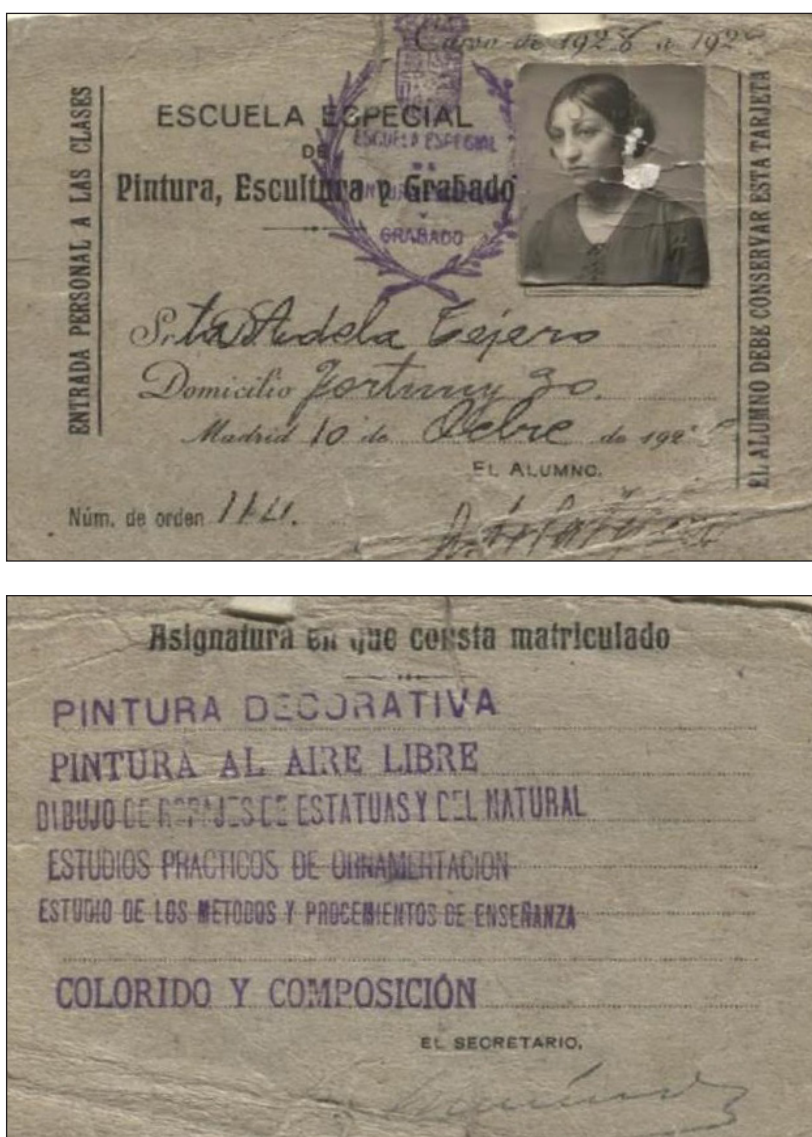 Curso de 1928 a 192
ENTRADA PERSONAL A LAS CLASES
ESCUELA ESPECIAL
DE
Pintura, Escultura y Grabado
ESCUELA ESPECIAL
DE
PINTURA
Y
GRABADO
EL ALUMNO DEBE CONSERVAR ESTA TARJETA
Srta Dª Adela Tejero
Domicilio Fortuny 30.
Madrid 10 de Octbre de 192
EL ALUMNO.
Núm. de orden 114.
Asignatura en que consta matriculado
PINTURA DECORATIVA
PINTURA AL AIRE LIBRE
DIBUJO DE ROPAJES DE ESTATUAS Y DEL NATURAL
ESTUDIOS PRACTICOS DE ORNAMENTACION
ESTUDIO DE LOS METODOS Y PROCEDIMIENTOS DE ENSEÑANZA
COLORIDO Y COMPOSICIÓN
EL SECRETARIO,